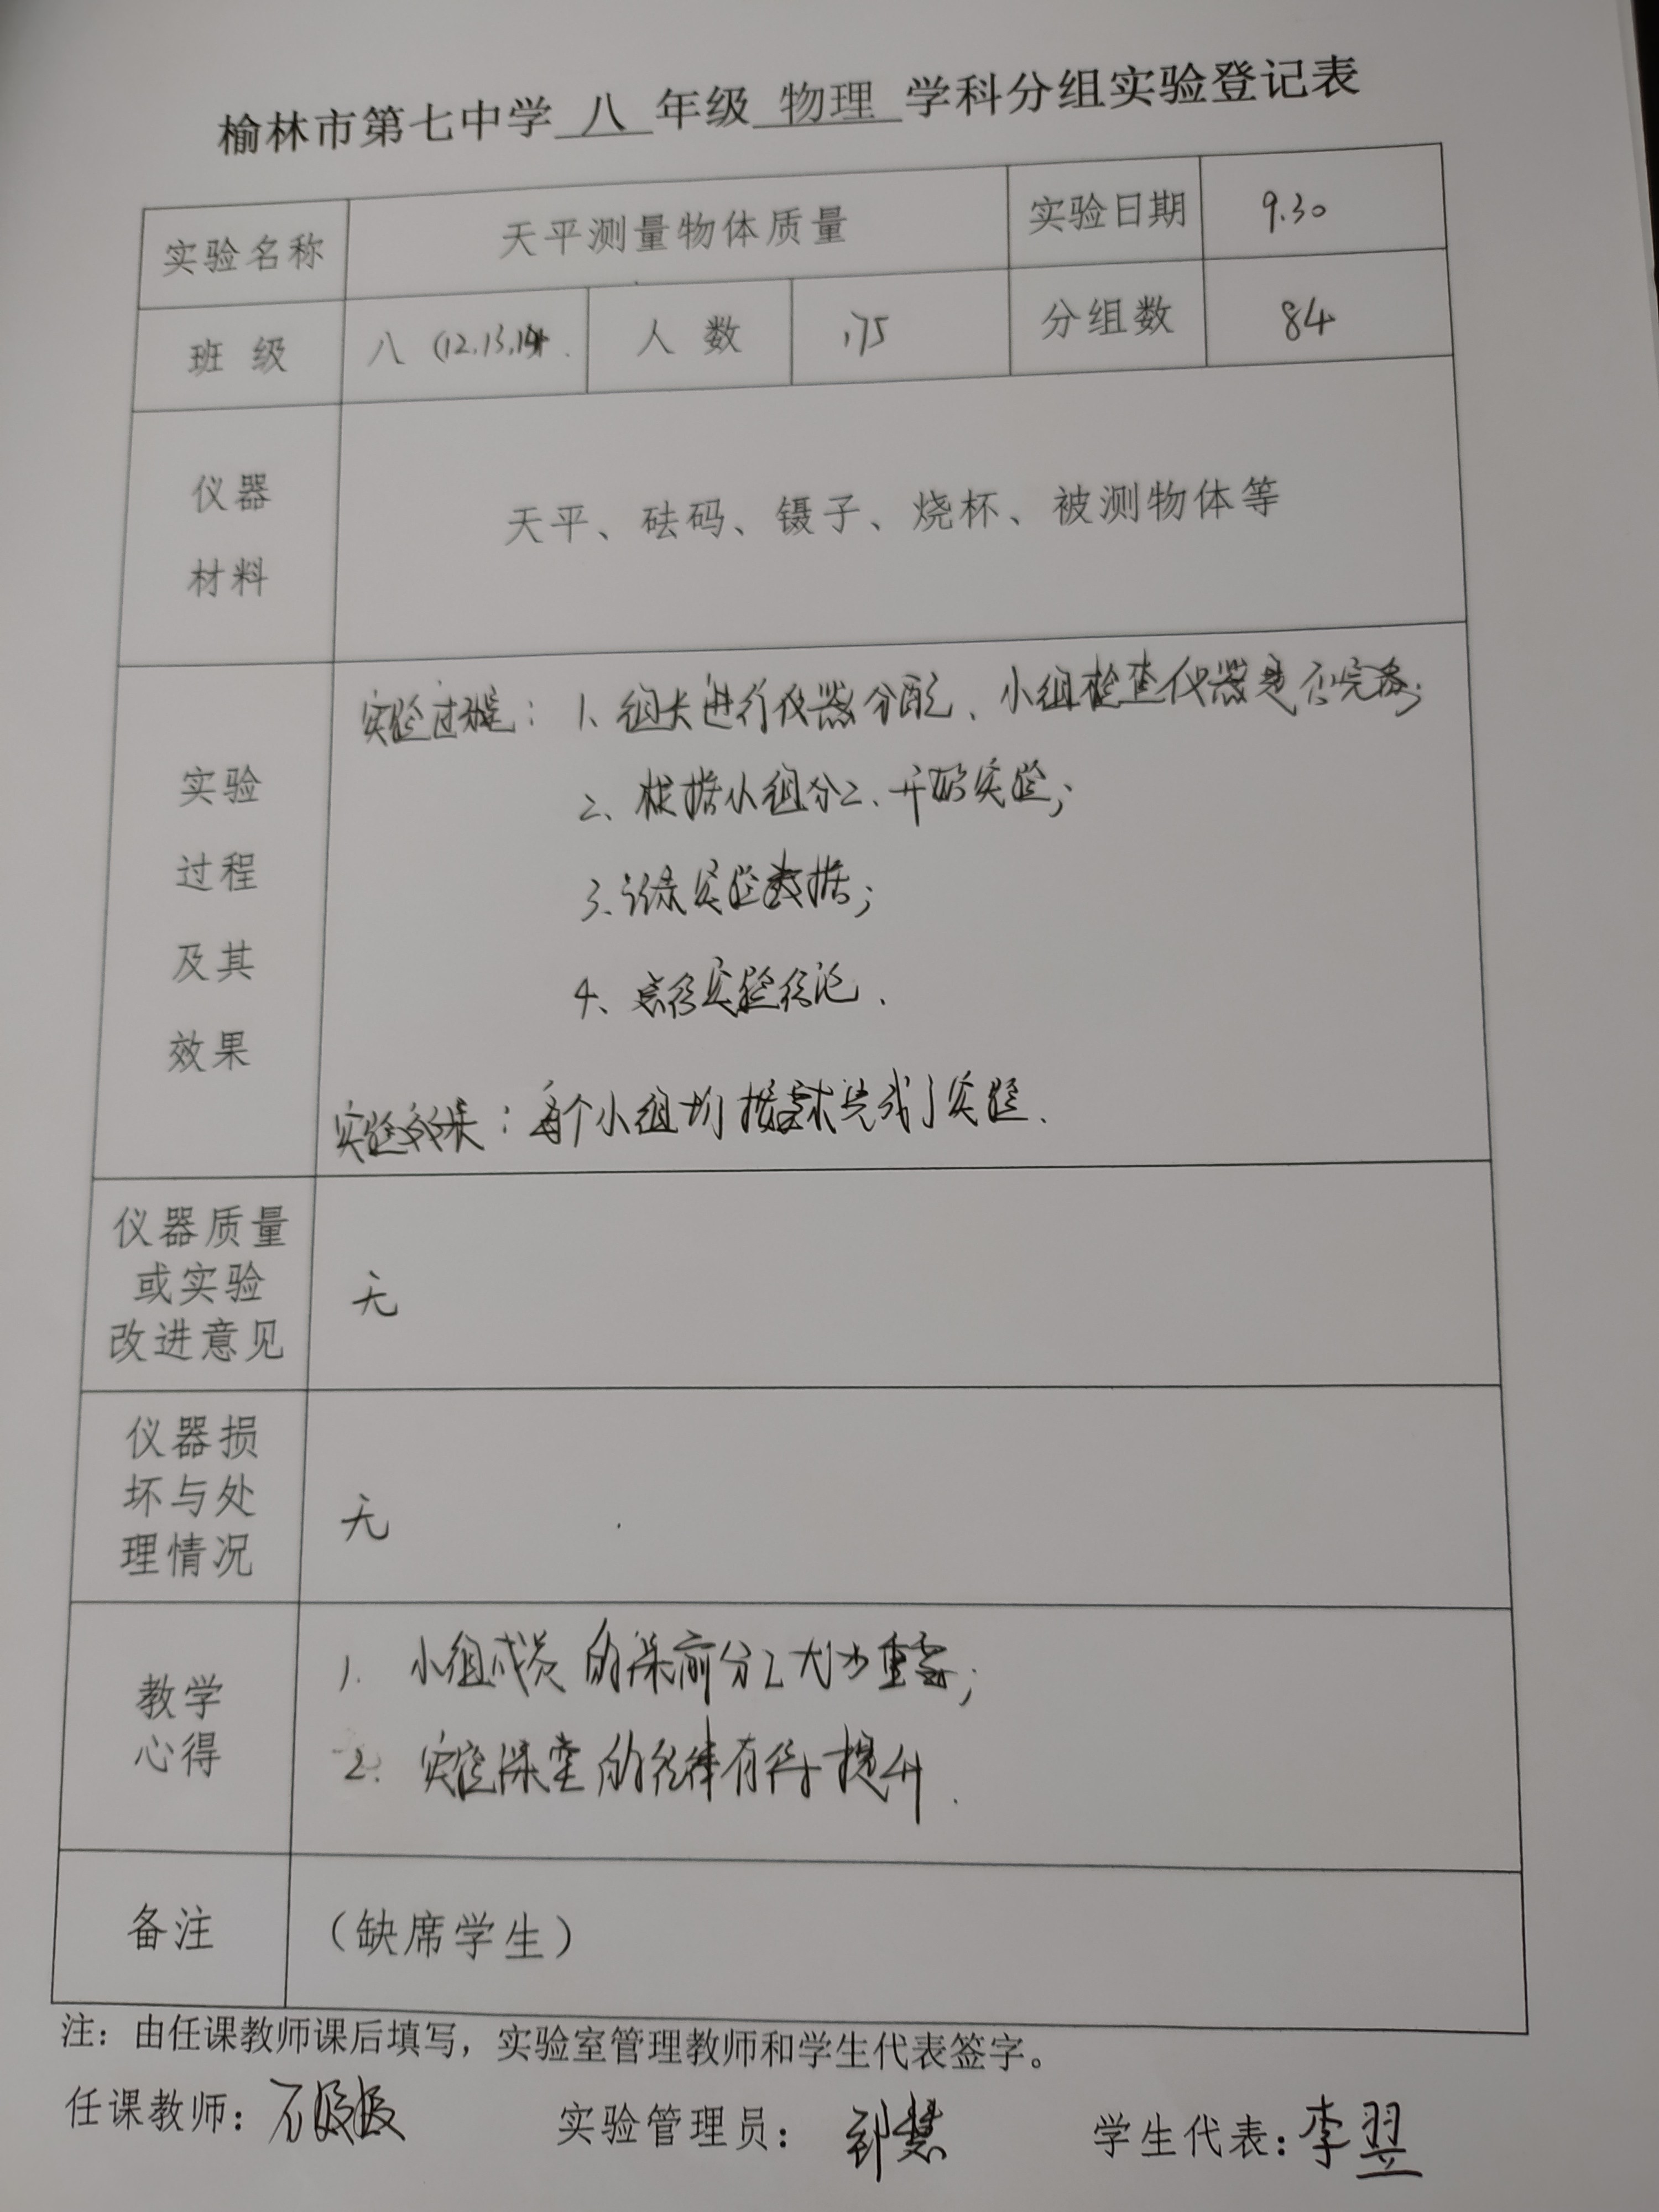 榆林市第七中学 八 年级 物理 学科分组实验登记表
实验名称 天平测量物体质量 实验日期 9.30
班 级 八 (12.13.14). 人 数 175 分组数 84
仪器
材料
天平、砝码、镊子、烧杯、被测物体等
实验
过程
及其
效果
实验过程: 1、组长进行仪器分配、小组检查仪器是否完备;
2、根据小组分工、开始实验;
3、记录实验数据;
4、总结实验结论.
实验效果: 每个小组均按要求完成了实验.
仪器质量
或实验
改进意见
无
仪器损
坏与处
理情况
无
教学
心得
1. 小组成员的课前分工尤为重要;
2. 实验课堂的纪律有待提升.
备注 (缺席学生)
注: 由任课教师课后填写, 实验室管理教师和学生代表签字。
任课教师: 实验管理员: 学生代表: 李翌